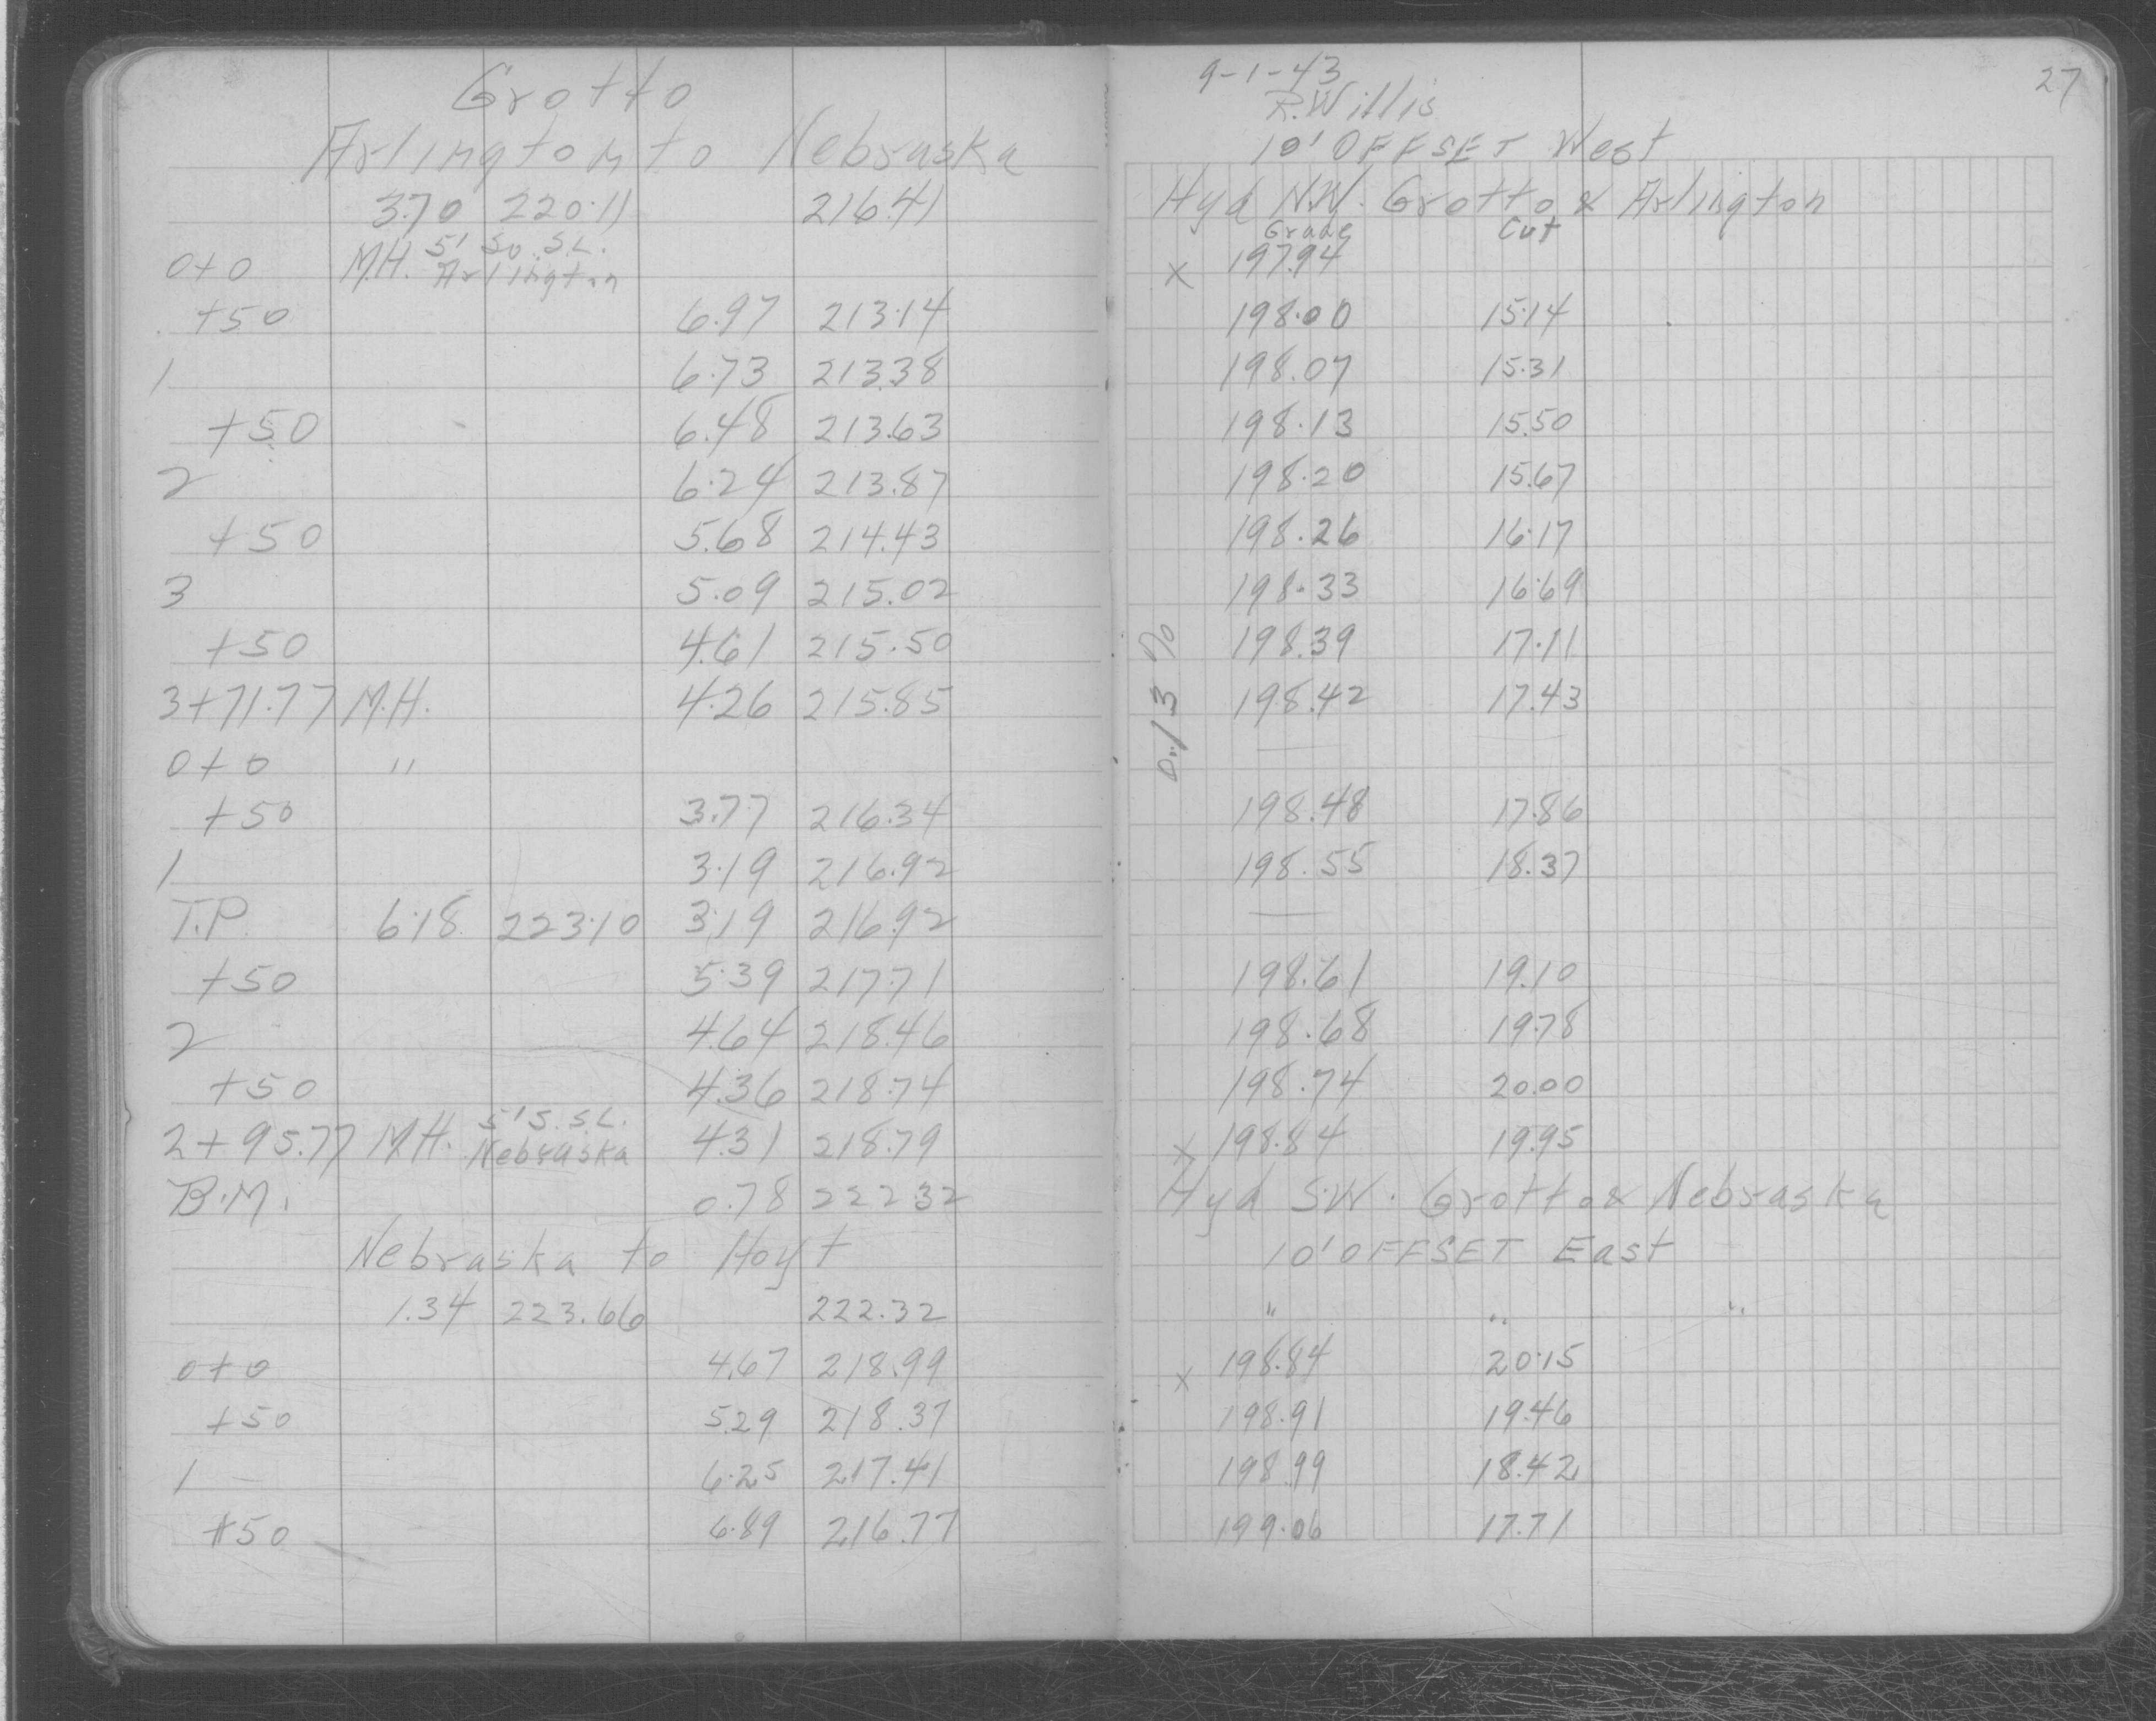 Grotto
Arlington to Nebraska
3.70 220.11 216.41
0+0 M.H. 5' So. S.L. Arlington
+50 6.97 213.14
1 6.73 213.38
+50 6.48 213.63
2 6.24 213.87
+50 5.68 214.43
3 5.09 215.02
+50 4.61 215.50
3+71.77 M.H. 4.26 215.85
0+0 "
+50 3.77 216.34
1 3.19 216.92
T.P. 6.18 223.10 3.19 216.92
+50 5.39 217.71
2 4.64 218.46
+50 4.36 218.74
2+95.77 M.H. 5' S. S.L. Nebraska 4.31 218.79
B.M. 0.78 222.32
Nebraska to Hoyt
1.34 223.66 222.32
0+0 4.67 218.99
+50 5.29 218.37
1 6.25 217.41
+50 6.89 216.77
9-1-43
27
R. Willis
10' OFFSET West
Hyd N.W. Grotto & Arlington
Grade Cut
x 197.94
198.00 15.14
198.07 15.31
198.13 15.50
198.20 15.67
198.26 16.17
198.33 16.69
198.39 17.11
198.42 17.43
0.13 %
198.48 17.86
198.55 18.37
198.61 19.10
198.68 19.78
198.74 20.00
x 198.84 19.95
Hyd S.W. Grotto & Nebraska
10' OFFSET East
" " "
x 198.84 20.15
198.91 19.46
198.99 18.42
199.06 17.71